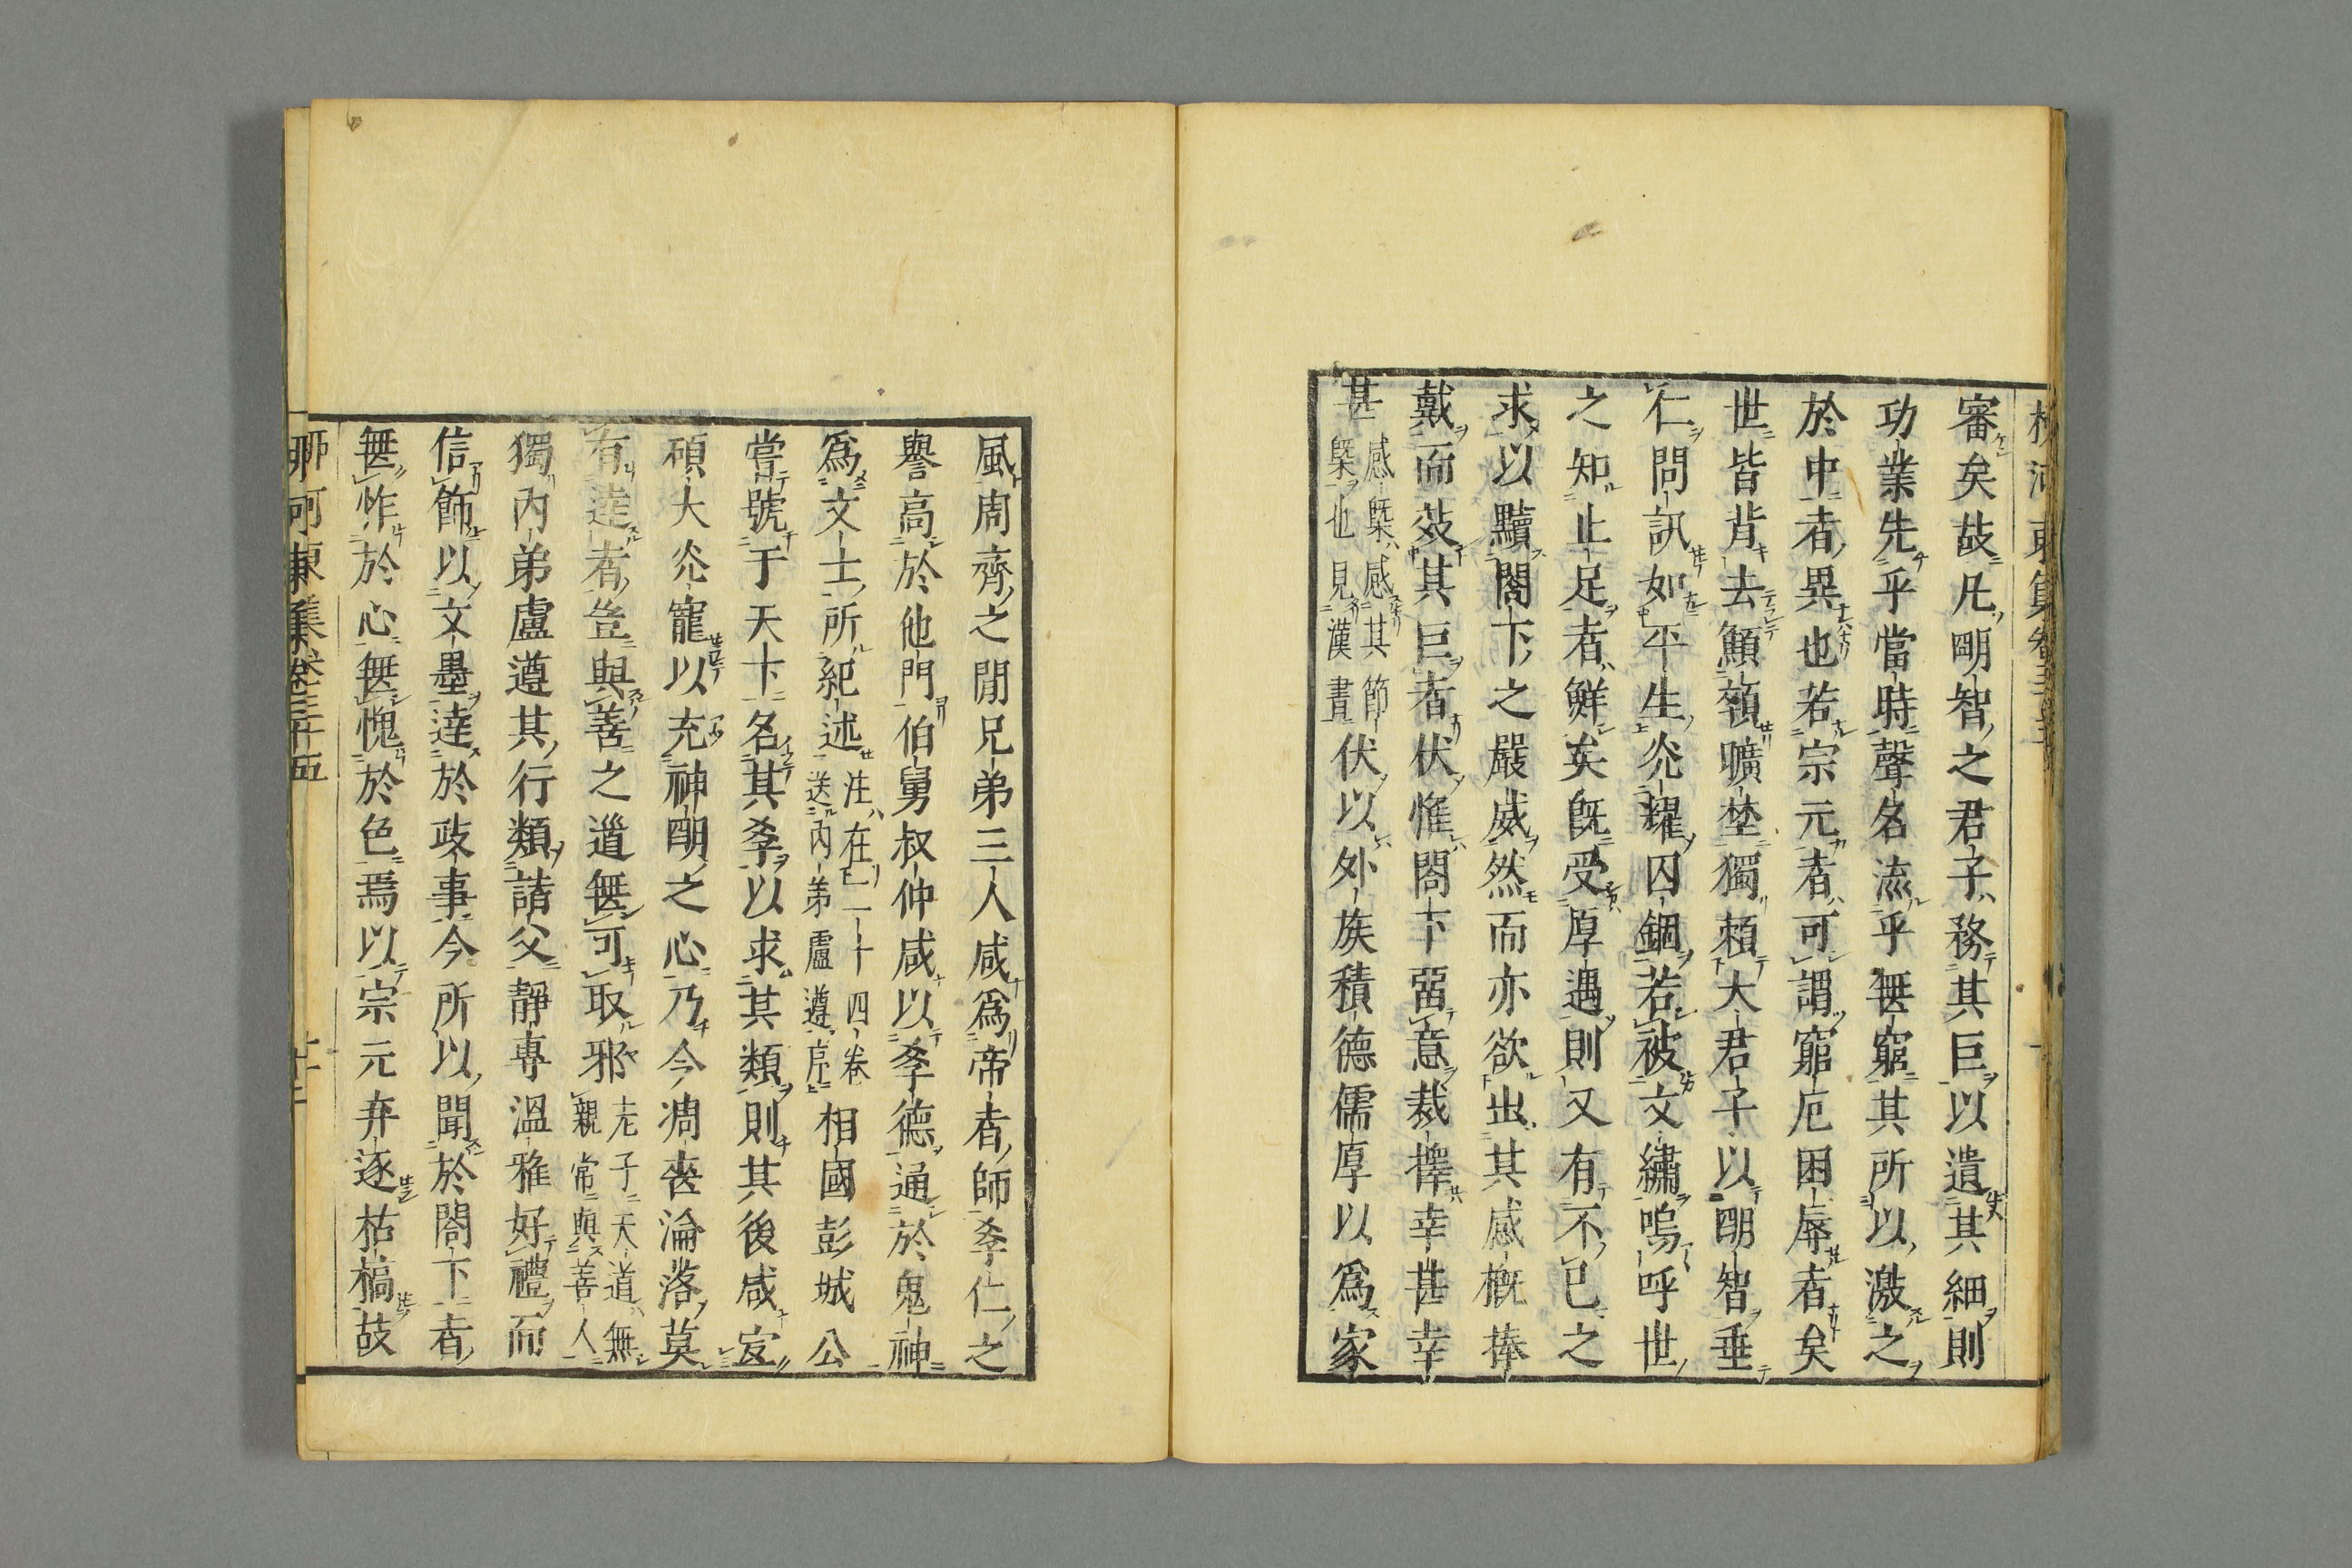 審矣故凡明智之君子務其巨以遺其細則
功業先乎當時聲名流乎無窮其所以激之
於中者異也若宗元者可謂窮厄困辱者矣
世皆背去顦顇曠埜獨賴大君子以明智垂
仁問訊如平生光耀囚錮若被文繡嗚呼世
之知止足者鮮矣既受厚遇則又有不已之
求以黷閤下之嚴威然而亦欲出其感概捧
戴而效其巨者伏惟閤下留意裁擇幸甚幸
甚感槩感其節槩也見漢書伏以外族積德儒厚以爲家
風周齊之閒兄弟三人咸爲帝者師孝仁之
譽高於他門伯舅叔仲咸以孝德通於鬼神
爲文士所紀述注在二十四卷送內弟盧遵序相國彭城公
嘗號于天下名其孝以求其類則其後咸宜
碩大光寵以充神明之心乃今凋喪淪落莫
有達者豈與善之道無可取邪老子天道無親常與善人
獨內弟盧遵其行類諸父靜專溫雅好禮而
信飾以文墨達於政事今所以聞於閤下者
無怍於心無愧於色焉以宗元弃逐枯槁故
柳河東集卷三十五